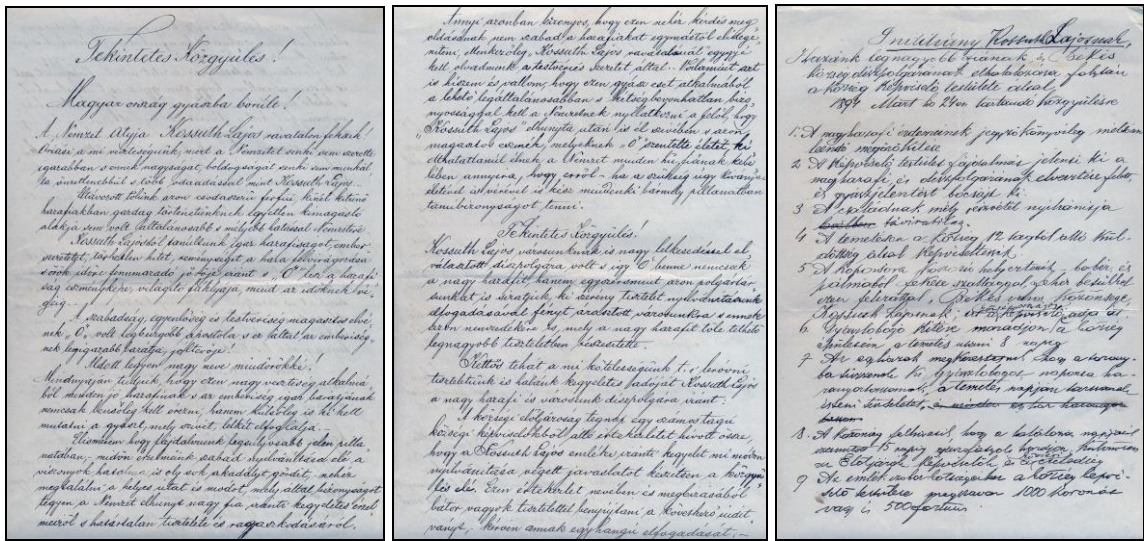 Tekintetes Közgyülés!
Magyarország gyászba borúlt!
A Nemzet Atyja Kossuth Lajos ravatalon fekszik!
Óriási a mi veszteségünk, mert a Nemzetet senki sem szerette
igazabban s ennek nagyságát, boldogságát senki sem munkál-
ta önzetlenebbül s több odaadással mint Kossuth Lajos.
Eltávozott tőlünk azon férfiú, kinél kitünő
hazafiakban gazdag történetünknek egyetlen kimagasló
alakja sem volt általánosabb s mélyebb hatással Nemzetére.
Kossuth Lajostól tanúltunk igaz hazafiságot, ember
szeretetet, törhetlen hitet, reménységet a haza felvirágozása
s örök időre fennmaradó jövője iránt s "Ő" lesz a hazafi-
ság eszményképe, világító fáklyája, mind az időknek vé-
géig.
A szabadság, egyenlőség és testvériség magasztos elvé-
nek, "Ő" volt legbuzgóbb apostola s ez által az emberiség-
nek legigazabb barátja, jóltevője!
Áldott legyen nagy neve mindörökké!
Mindnyájan tudjuk, hogy ezen nagy veszteség alkalmá-
ból minden jó hazafinak s az emberiség igaz barátjának
nemcsak bensőleg kell érezni, hanem külsőleg is ki kell
mutatni a gyászt, mely szívét, lelkét elfoglalja.
Elismerem hogy fájdalmunk legsúlyosabb jelen pilla-
natában, midőn érzelmünk szabad nyilvánítása elé a
viszonyok hatalma is oly sok akadályt gördít, nehéz
megtalálni a helyes utat és módot, mely által bizonyságot
tegyen a Nemzet elhunyt nagy fia iránti kegyeletes érzel-
meiről s határtalan tisztelete és ragaszkodásáról.
Annyi azonban bizonyos, hogy ezen nehéz kérdés meg
oldásának nem szabad a hazafiakat egymástól elidege-
níteni, Kossuth Lajos ravatalánál eggyé
kell olvadnunk a testvéries szeretet által. Valamint azt
is hiszem és vallom, hogy ezen gyász eset alkalmából
a lehető legáltalánosabban s kétségbevonhatlan bizo-
nyossággal kell a Nemzetnek nyilatkozni a felől, hogy
"Kossuth Lajos" elhunyta után is él szívében s azon
magasztos eszmék, melyeknek "Ő" szentelte életét, ki
olthatatlanúl élnek a Nemzet minden hű fiának kebe
lében annyira, hogy erről – ha a szükség úgy kívánja
életével és vérével is kész mindenki bármely pillanatban
tanúbizonyságot tenni.
Tekintetes Közgyülés!
Kossuth Lajos városunknak is nagy lelkesedéssel el-
választott díszpolgára volt s így Ő benne nemcsak
a nagy hazafit, hanem egyszersmint azon polgártár-
sunkat is siratjuk, ki szerény tisztelet nyilvánításunk
elfogadásával fényt árasztott városunkra s ennek
azon nemzedékére is, mely a nagy hazafit tőle telhető
legnagyobb tiszteletben részesítette.
Kettős tehát a mi kötelességünk t. i. leróvni
tiszteletünk és hálánk kegyeletes adóját Kossuth Lajos
a nagy hazafi és városunk díszpolgára iránt.
A községi elöljáróság tegnap egy számos tagú
községi képviselőkből álló értekezletet hívott össze,
hogy a Kossuth Lajos emléke iránti kegyelet mi módon
nyilvánítása végett javaslatot készítsen a közgyü-
lés elé. Ezen értekezlet nevében és megbízásából
bátor vagyok tisztelettel benyujtani a következő indít-
ványt, kérvén annak egyhangú elfogadását:–
Indítvány Kossuth Lajosnak,
Hazánk legnagyobb fiának és Békés
község díszpolgárának elhalálozása folytán
a község képviselő testülete által
1894 Márt hó 24én tartandó közgyülésre
1. A nagy hazafi érdemeinek jegyzőkönyvileg méltóan
leendő megörökítése
2. A képviselő testület fájdalmas jelenti ki a
nagy hazafi és díszpolgárának elvesztése felett,
és gyászjelentést bocsájt ki.
3 A családnak mély részvétét nyilvánítja
táviratilag.
4 A temetésen a község 12 tagból álló kül-
döttség által képviselteti
5 A koporsóra koszorú helyeztessék – babér és
pálmából fekete szallaggal fehér betükkel
ezen felirattal "Békés város közönsége,
Kossuth Lajosnak"
6. Gyászlobogó kitéve maradjon a község
épületein a temetés utáni 8 napig
7 Az egyházak megkerestetnek, hogy a torony-
ba tüzessenek ki gyászlobogót naponta ha-
rangoztassanak, a temetés napján tartsanak
isteni tiszteletet,
8. A lakosság felhivatik, hogy a halálozás napjától
számított 15 napig
az Elöljárók Képviselők és
9 Az emlék szobor költségeihez a község képvi-
selő testülete megszavaz 1000 koronát
vagyis 500 forintot